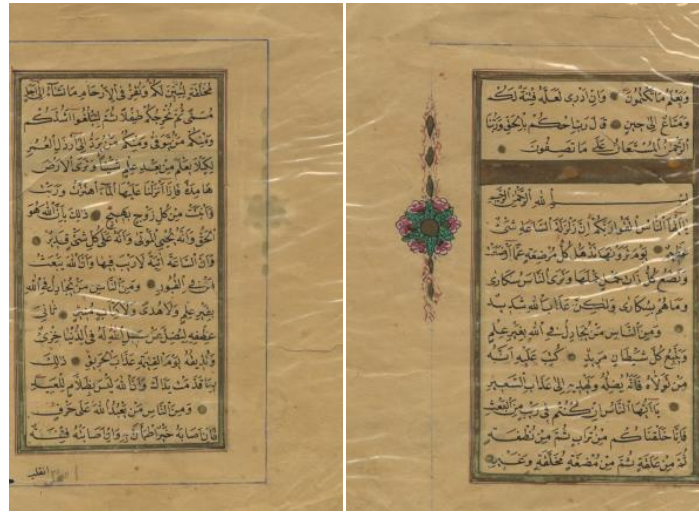 وَيَعْلَمُ مَا تَكْتُمُونَ وَاِنْ اَدْرِى لَعَلَّهُ فِتْنَةٌ لَكُمْ
وَمَتَاعٌ اِلٰى حِينٍ قَالَ رَبِّ احْكُمْ بِالْحَقِّ وَرَبُّنَا
الرَّحْمٰنُ الْمُسْتَعَانُ عَلٰى مَا تَصِفُونَ
بِسْمِ اللهِ الرَّحْمٰنِ الرَّحِيمِ
يَااَيُّهَا النَّاسُ اتَّقُوا رَبَّكُمْ اِنَّ زَلْزَلَةَ السَّاعَةِ شَىْءٌ
عَظِيمٌ يَوْمَ تَرَوْنَهَا تَذْهَلُ كُلُّ مُرْضِعَةٍ عَمَّا اَرْضَعَتْ
وَتَضَعُ كُلُّ ذَاتِ حَمْلٍ حَمْلَهَا وَتَرَى النَّاسَ سُكَارٰى
وَمَا هُمْ بِسُكَارٰى وَلٰكِنَّ عَذَابَ اللهِ شَدِيدٌ
وَمِنَ النَّاسِ مَنْ يُجَادِلُ فِى اللهِ بِغَيْرِ عِلْمٍ
وَيَتَّبِعُ كُلَّ شَيْطَانٍ مَرِيدٍ كُتِبَ عَلَيْهِ اَنَّهُ
مَنْ تَوَلَّاهُ فَاَنَّهُ يُضِلُّهُ وَيَهْدِيهِ اِلٰى عَذَابِ السَّعِيرِ
يَااَيُّهَا النَّاسُ اِنْ كُنْتُمْ فِى رَيْبٍ مِنَ الْبَعْثِ
فَاِنَّا خَلَقْنَاكُمْ مِنْ تُرَابٍ ثُمَّ مِنْ نُطْفَةٍ
ثُمَّ مِنْ عَلَقَةٍ ثُمَّ مِنْ مُضْغَةٍ مُخَلَّقَةٍ وَغَيْرِ
مُخَلَّقَةٍ لِنُبَيِّنَ لَكُمْ وَنُقِرُّ فِى الْاَرْحَامِ مَا نَشَاءُ اِلٰى اَجَلٍ
مُسَمًّى ثُمَّ نُخْرِجُكُمْ طِفْلًا ثُمَّ لِتَبْلُغُوا اَشُدَّكُمْ
وَمِنْكُمْ مَنْ يُتَوَفّٰى وَمِنْكُمْ مَنْ يُرَدُّ اِلٰى اَرْذَلِ الْعُمُرِ
لِكَيْلَا يَعْلَمَ مِنْ بَعْدِ عِلْمٍ شَيْئًا وَتَرَى الْاَرْضَ
هَامِدَةً فَاِذَا اَنْزَلْنَا عَلَيْهَا الْمَاءَ اهْتَزَّتْ وَرَبَتْ
وَاَنْبَتَتْ مِنْ كُلِّ زَوْجٍ بَهِيجٍ ذٰلِكَ بِاَنَّ اللهَ هُوَ
الْحَقُّ وَاَنَّهُ يُحْيِى الْمَوْتٰى وَاَنَّهُ عَلٰى كُلِّ شَىْءٍ قَدِيرٌ
وَاَنَّ السَّاعَةَ اٰتِيَةٌ لَا رَيْبَ فِيهَا وَاَنَّ اللهَ يَبْعَثُ
مَنْ فِى الْقُبُورِ وَمِنَ النَّاسِ مَنْ يُجَادِلُ فِى اللهِ
بِغَيْرِ عِلْمٍ وَلَا هُدًى وَلَا كِتَابٍ مُنِيرٍ ثَانِىَ
عِطْفِهِ لِيُضِلَّ عَنْ سَبِيلِ اللهِ لَهُ فِى الدُّنْيَا خِزْىٌ
وَنُذِيقُهُ يَوْمَ الْقِيٰمَةِ عَذَابَ الْحَرِيقِ ذٰلِكَ
بِمَا قَدَّمَتْ يَدَاكَ وَاَنَّ اللهَ لَيْسَ بِظَلَّامٍ لِلْعَبِيدِ
وَمِنَ النَّاسِ مَنْ يَعْبُدُ اللهَ عَلٰى حَرْفٍ
فَاِنْ اَصَابَهُ خَيْرٌ اطْمَاَنَّ بِهِ وَاِنْ اَصَابَتْهُ فِتْنَةٌ
انقلب